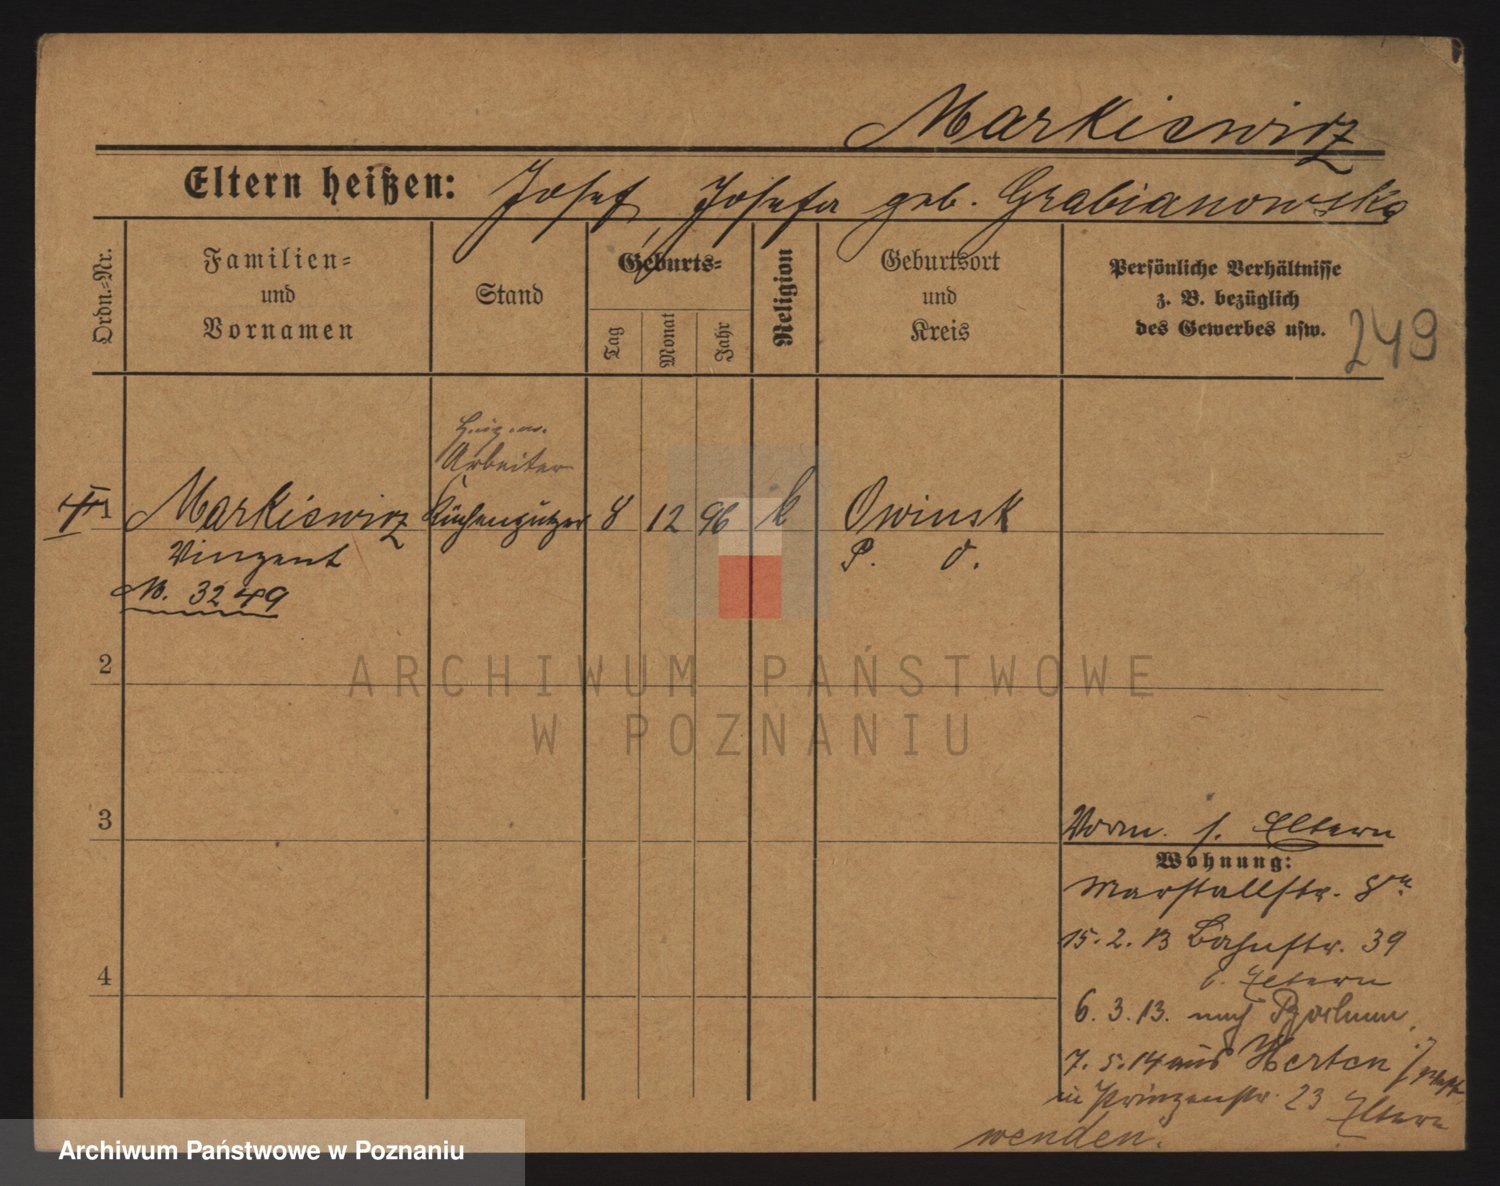 Markiewicz
Eltern heißen: Josef, Josefa geb. Grabianowska
Ordn.-Nr.
Familien-
und
Vornamen
Stand
Geburts-
Tag
Monat
Jahr
Religion
Geburtsort
und
Kreis
Persönliche Verhältnisse
z. B. bezüglich
des Gewerbes usw.
249
Arbeiter
1 Markiewicz 8 12 96 k Owinsk
Vinzent P. O.
M. 3249
2
ARCHIWUM PAŃSTWOWE
W POZNANIU
3
Vorm. s. Eltern
Wohnung:
Marstallstr. 8
15. 2. 13 Bahnstr. 39
b. Eltern
4
6. 3. 13. nach
7. 5. 14 aus Herten
in Prinzenstr. 23 Eltern
wenden.
Archiwum Państwowe w Poznaniu